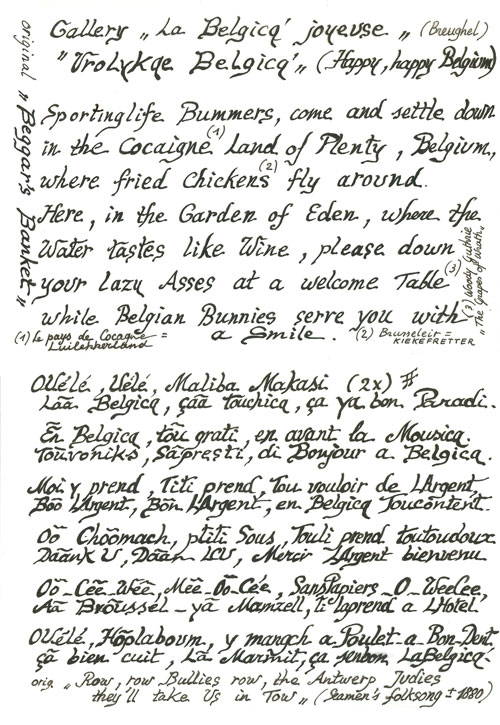 Gallery „ La Belgicq' joyeuse „ (Breughel)
" Vrolykqe Belgicq' „ (Happy, happy Belgium)
original „ Beggar's Banket "
Sportinglife Bummers, come and settle down
in the Cocaigne (1) Land of Plenty, Belgium,
where fried Chickens (2) fly around.
Here, in the Garden of Eden, where the
Water tastes like Wine, please down
your Lazy Asses at a welcome Table (3)
while Belgian Bunnies serve you with
a Smile.
(3) Woody Guthrie
„ The Grapes of Wrath „
(1) Le pays de Cocagne =
Luilekkerland
(2) Bruneleir =
KIEKEFRETTER
OUélé, Uélé, Maliba Makasi (2x)
Lãã Belgicq, çãã touchicq, ça ya bon Paradi.
Ẽn Belgicq, tõu grati, en avant la Mousicq.
Touvoniks, Sapresti, di Bonjour a Belgicq.
Moi y prend, Titi prend Tou vouloir de LArgent,
Bõõ LArgent, Bõn LArgent, en Belgicq Toucontent.
Oõ Choõmach, ptiti Sous, Touli prend toutoudoux
Dããnk U, Dããn ICU, Mercir LArgent bienvenu
Oõ_Cẽẽ_Wẽẽ, Mẽẽ_Oõ_Cée, SansPapiers_O_WeeCee,
Aã Brõussel_ya Mamzell, ti laprend a LHotel.
OUélé, Hõplaboum, y mangch a Poulet a Bon_Dent
çã bien cuit, Lã Marmit, ça senbon LaBelgicq'.
orig. „ Row, row Bullies row, the Antwerp Judies
they'll take Us in Tow „ (Seamen's folksong ± 1880)